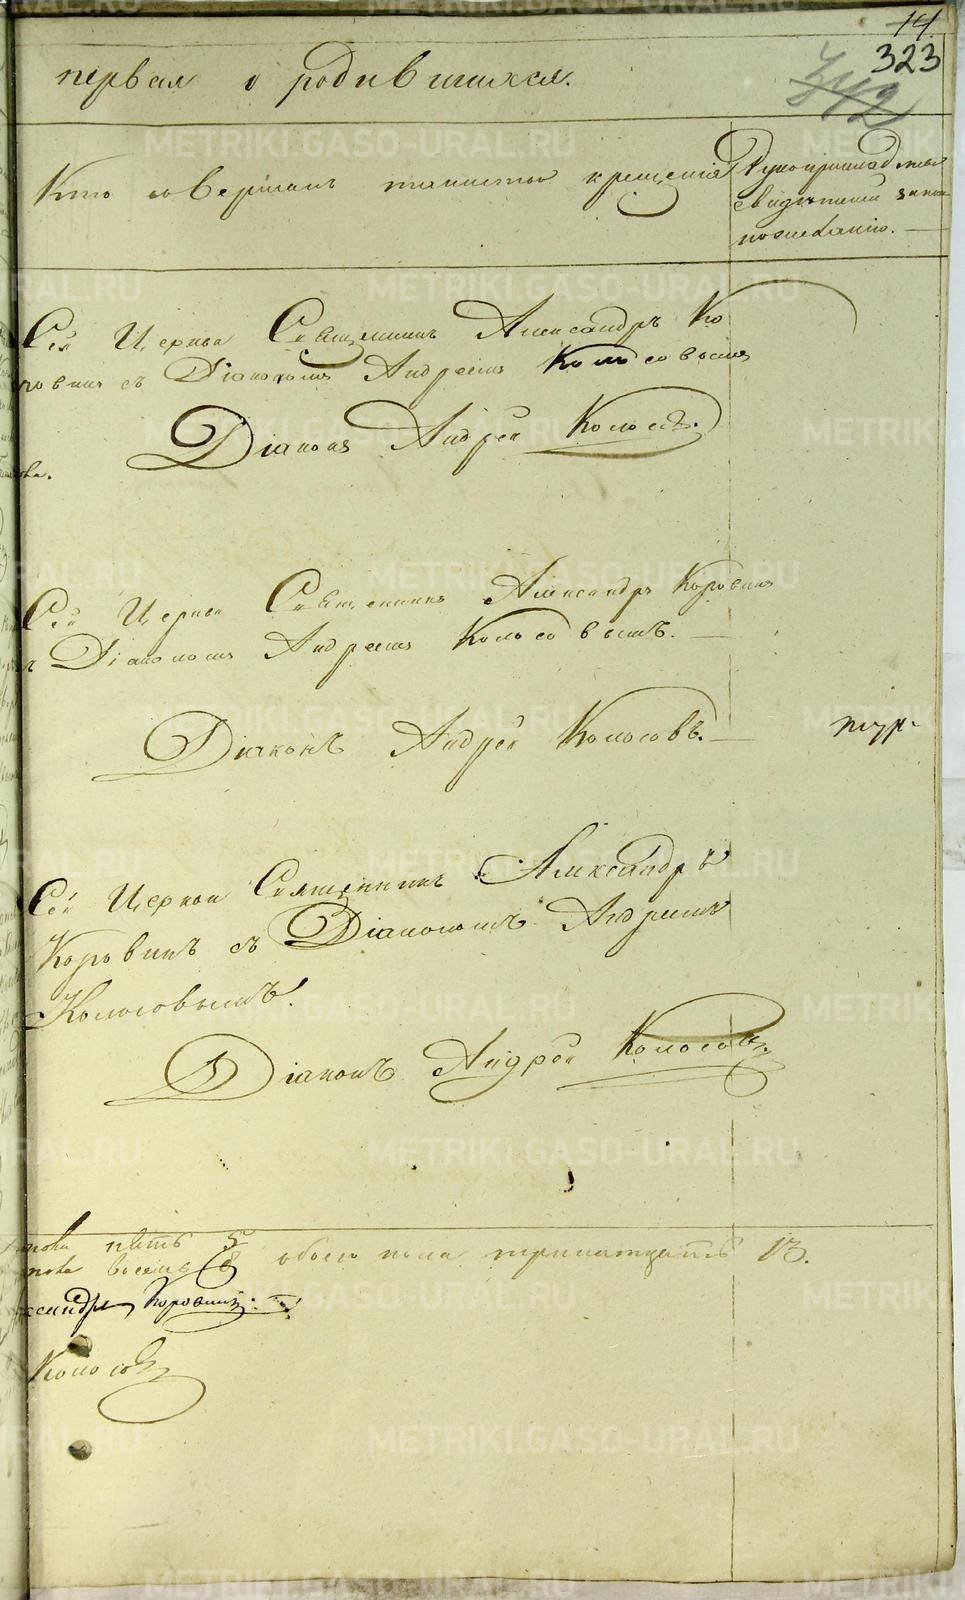 14.
323
342
первая о родившихся.
Кто совершалъ таинство крещенія
Рукоприкладство
свидѣтелей запи
по желанію.
Сей Церкви Священникъ Александръ Ко
ровинъ съ Діакономъ Андреемъ Колосовымъ
Діаконъ Андрей Колосовъ.
Сей Церкви Священникъ Александръ Коровинъ
съ Діакономъ Андреемъ Колосовымъ.
Діаконъ Андрей Колосовъ.
Сей Церкви Священникъ Александръ
Коровинъ съ Діакономъ Андреемъ
Колосовымъ.
Діаконъ Андрей Колосовъ
пола пять 5
пола восемь 8 обоего пола тринадцать 13.
ксандръ Коровинъ
Колосовъ
METRIKI.GASO-URAL.RU